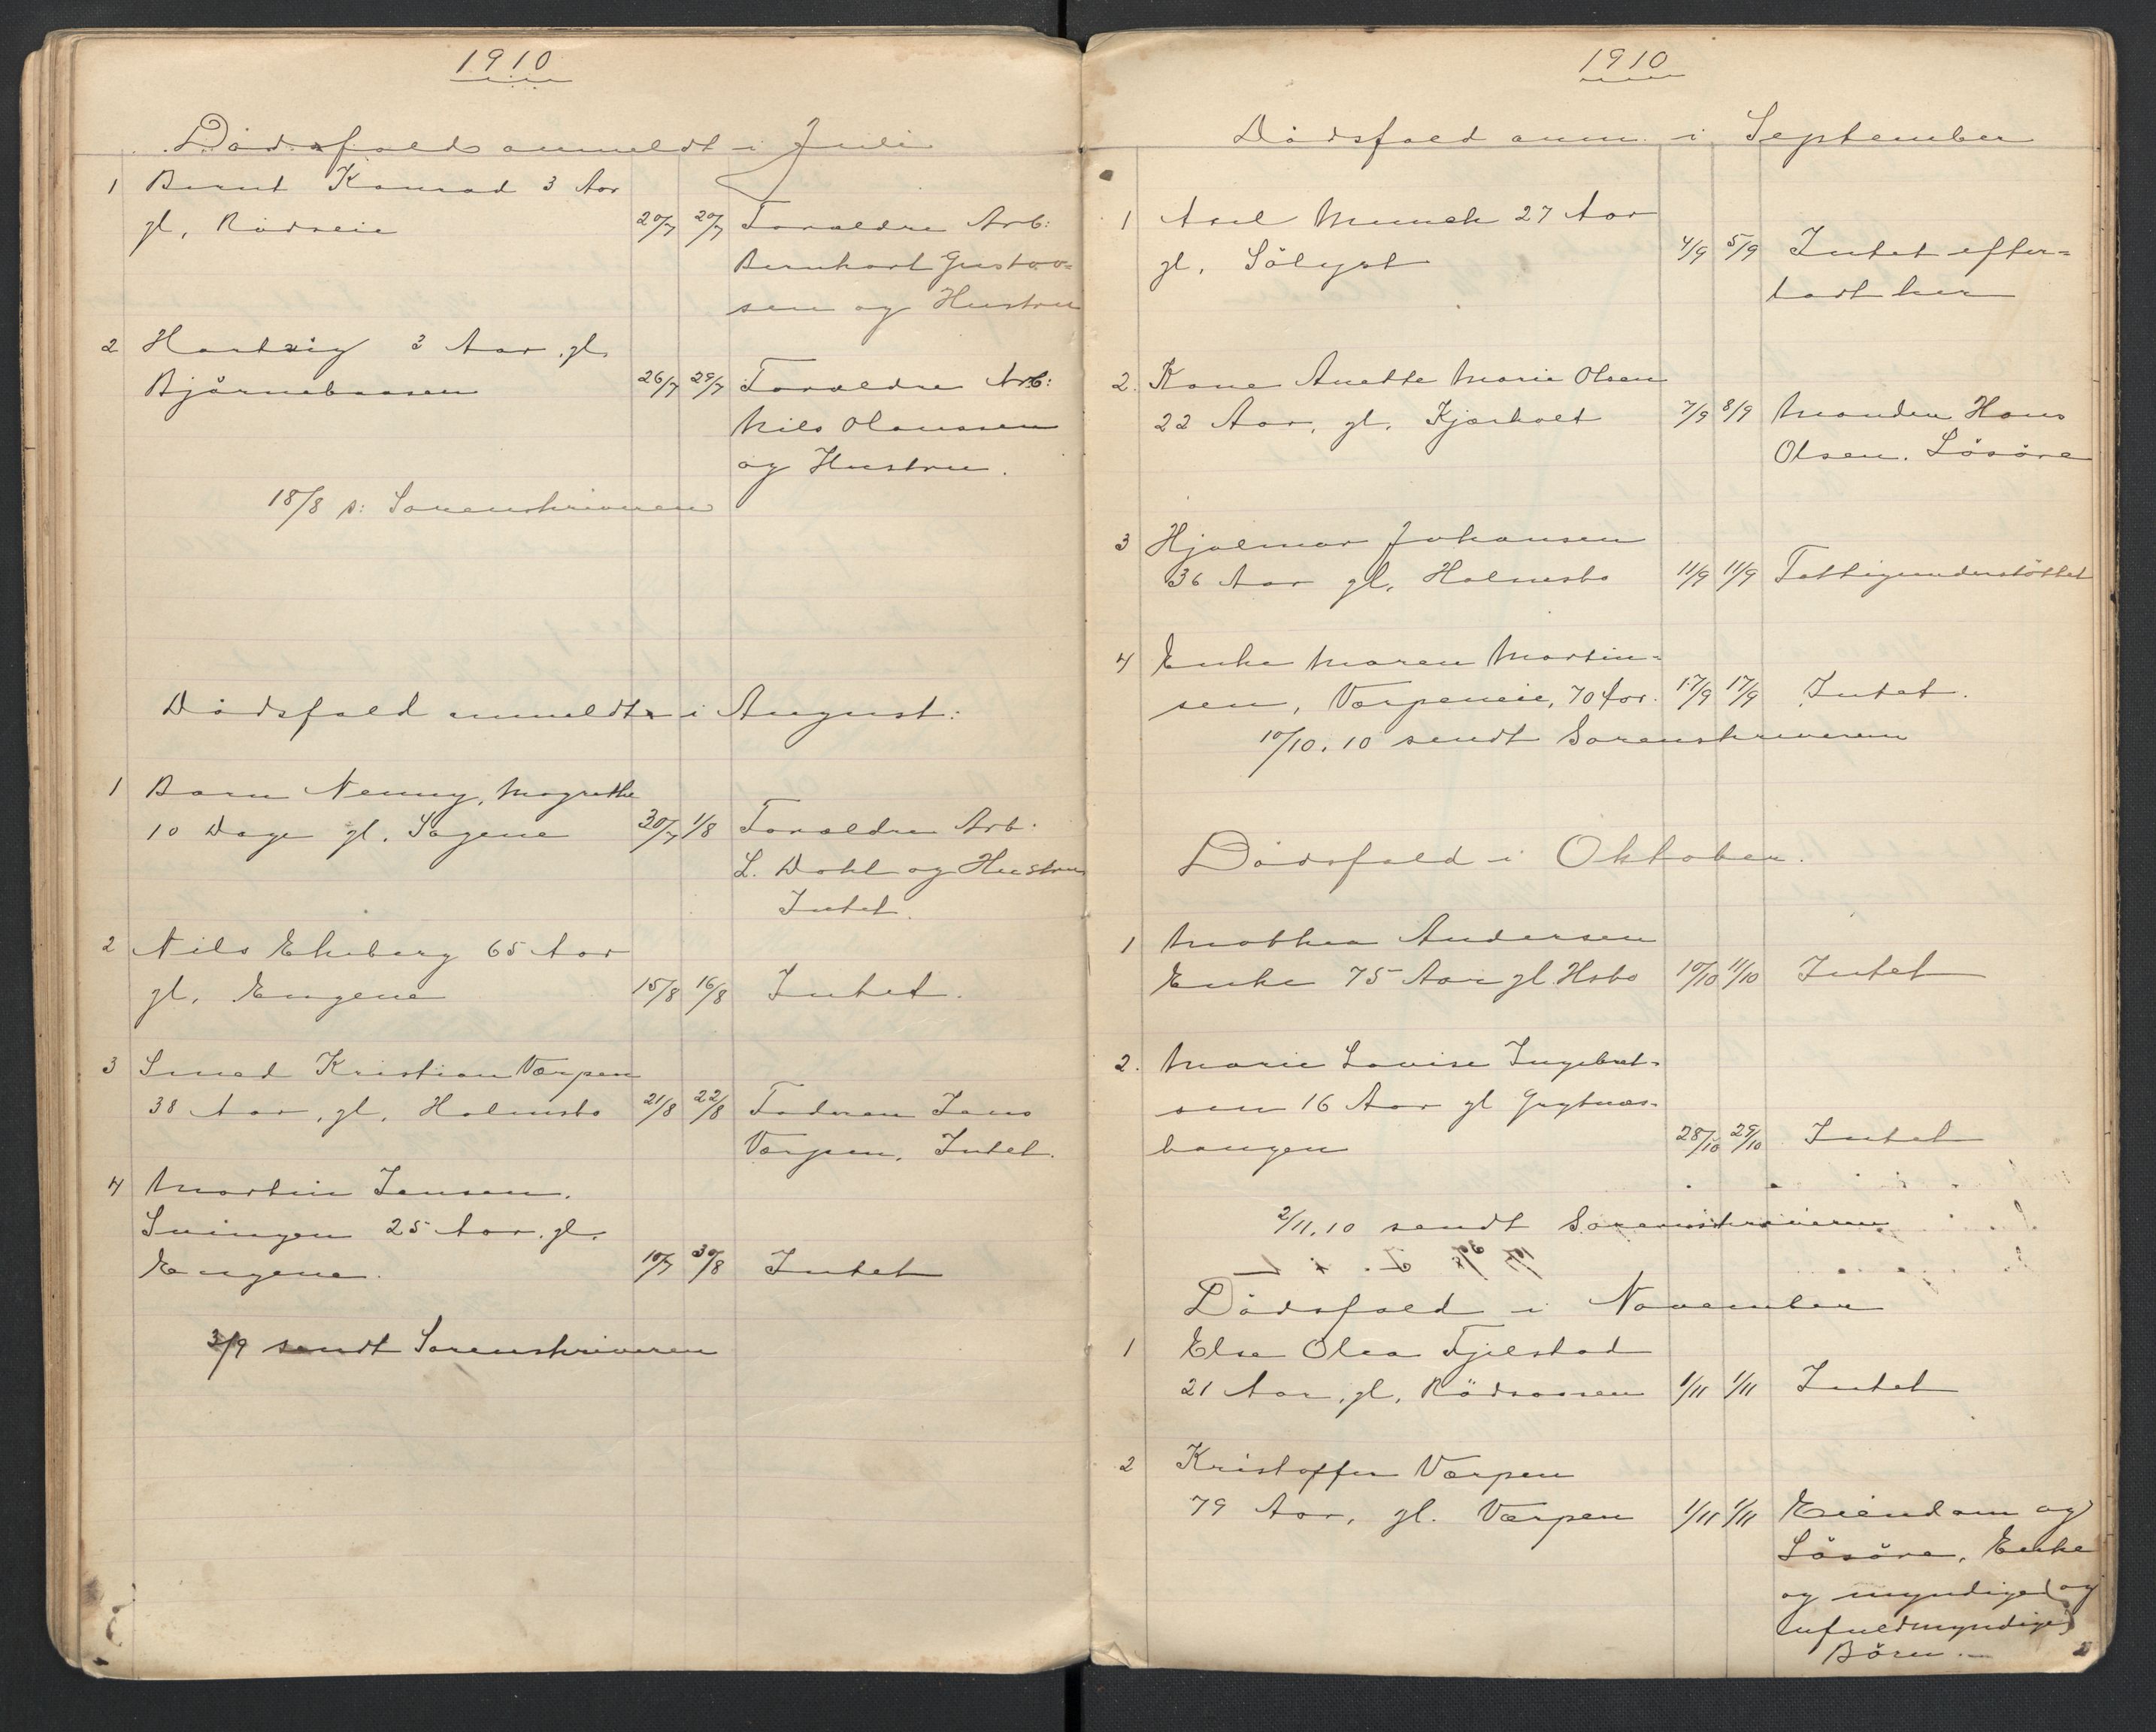 1910
Dödsfald anmeldt i Juli
1 Bernt Konrad 3 Aar
gl, Rödseie 20/7 20/7 Forældre Arb:
Bernhart Gustav-
sen og Hustru
2 Hartvig 3 Aar, gl.
Björnebaasen 26/7 29/7 Forældre Arb:
Nils Olaussen
og Hustru.
18/8 s: Sorenskriveren
Dödsfald anmeldt i August:
1 Barn Nenny, Magrethe
10 Dage gl. Sagene 30/7 1/8 Forældre Arb.
L. Dahl og Hustru
Intet.
2 Nils Ekeberg 65 Aar
gl, Engene 15/8 16/8 Intet.
3 Smed Kristian Værpen
38 Aar, gl, Holmsbo 21/8 22/8 Faderen Jens
Værpen, Intet.
4 Martin Jensen.
Svingen 25 Aar, gl.
Engene. 10/7 30/8 Intet
3/9 sendt Sorenskriveren
1910
Dödsfald anm. i September
1 Axel Munch 27 Aar
gl. Sölyst 4/9 5/9 Intet efter-
ladt her
2. Kone Anette Marie Olsen
22 Aar, gl, Kjærholt 7/9 8/9 Manden Hans
Olsen. Lösöre
3 Hjalmar Johansen
36 Aar gl, Holmsbo 11/9 11/9 Fattigunderstöttet
4 Enke Maren Martin-
sen, Værpeneie, 70 Aar. 17/9 17/9 Intet.
10/10.10 sendt Sorenskriveren
Dödsfald i Oktober.
1 Mathea Andersen
Enke 75 Aar gl Hsbo 10/10 11/10 Intet
2. Marie Lovise Ingebret-
sen 16 Aar gl Grytnes-
haugen 28/10 29/10 Intet
2/11.10 sendt Sorenskriveren
Dödsfald i November
1 Else Olea Fjelstad
21 Aar, gl, Rödsaasen 1/11 1/11 Intet
2 Kristoffer Værpen
79 Aar, gl. Værpen 1/11 1/11 Eiendom og
Lösöre, Enke
og myndige (og
ufuldmyndige)
Börn.